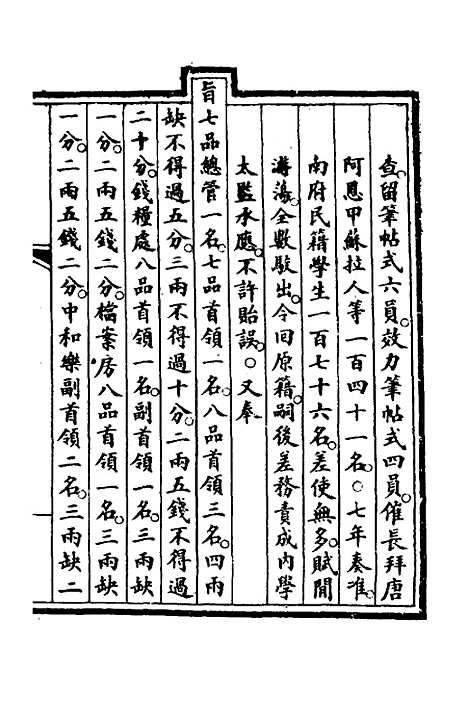 查。留筆帖式六員。效力筆帖式四員。催長拜唐
阿恩甲蘇拉人等一百四十一名。○七年奏准。
南府民籍學生一百七十六名。差使無多。賦閒
游蕩。全數駁出。今回原籍。嗣後差務責成內學
太監承應。不許貽誤。○又奉
旨七品總管一名。七品首領一名。八品首領三名。四兩
缺不得過五分。三兩不得過十分。二兩五錢不得過
二十分。錢糧處八品首領一名。副首領一名。三兩缺
一分。二兩五錢二分。檔案房八品首領一名。三兩缺
一分。二兩五錢二分。中和樂副首領二名。三兩缺二